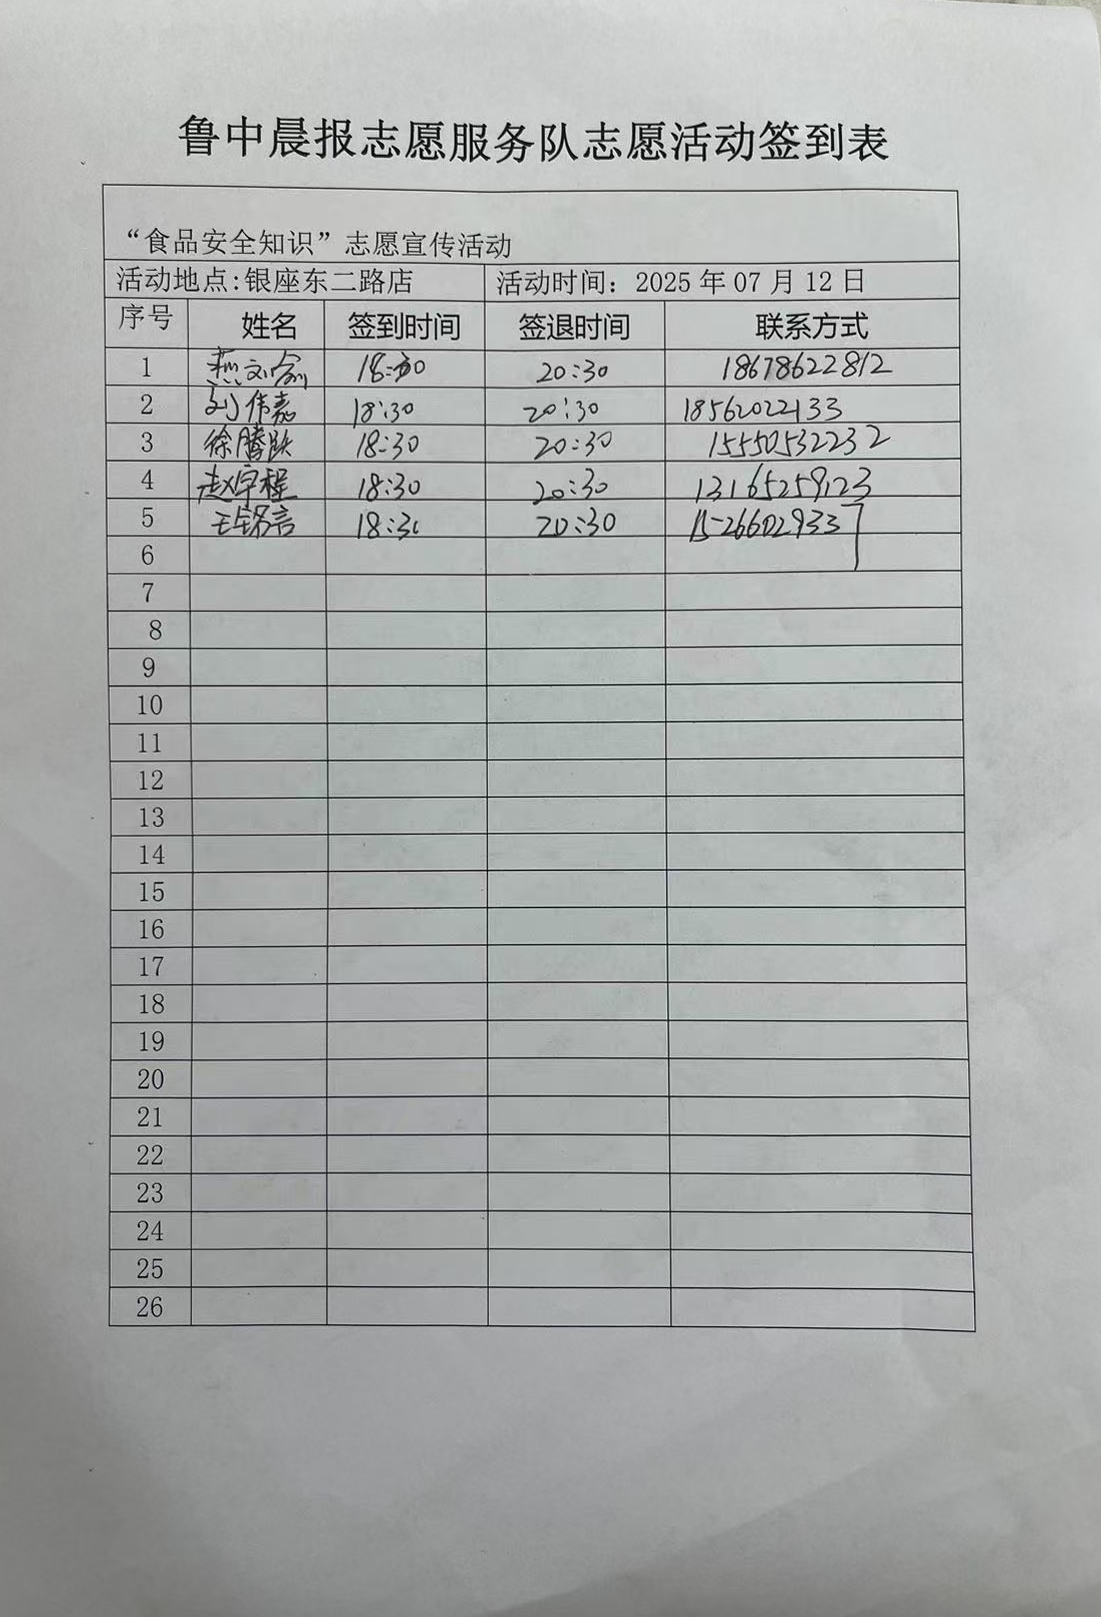 鲁中晨报志愿服务队志愿活动签到表
“食品安全知识”志愿宣传活动
活动地点:银座东二路店 活动时间：2025 年 07 月 12 日
序号 姓名 签到时间 签退时间 联系方式
1 燕刘翁 18:30 20:30 18678622812
2 刘伟嘉 18:30 20:30 18562022133
3 徐腾跃 18:30 20:30 15550532232
4 赵宇程 18:30 20:30 13165259123
5 王铭言 18:30 20:30 15266029337
6
7
8
9
10
11
12
13
14
15
16
17
18
19
20
21
22
23
24
25
26